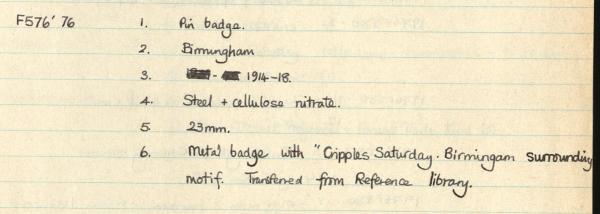 F576'76 1. Pin badge.
2. Birmingham
3. - 1914-18.
4. Steel + cellulose nitrate.
5. 23mm.
6. Metal badge with "Cripples Saturday. Birmingam surrounding
motif. Transferred from Reference library.